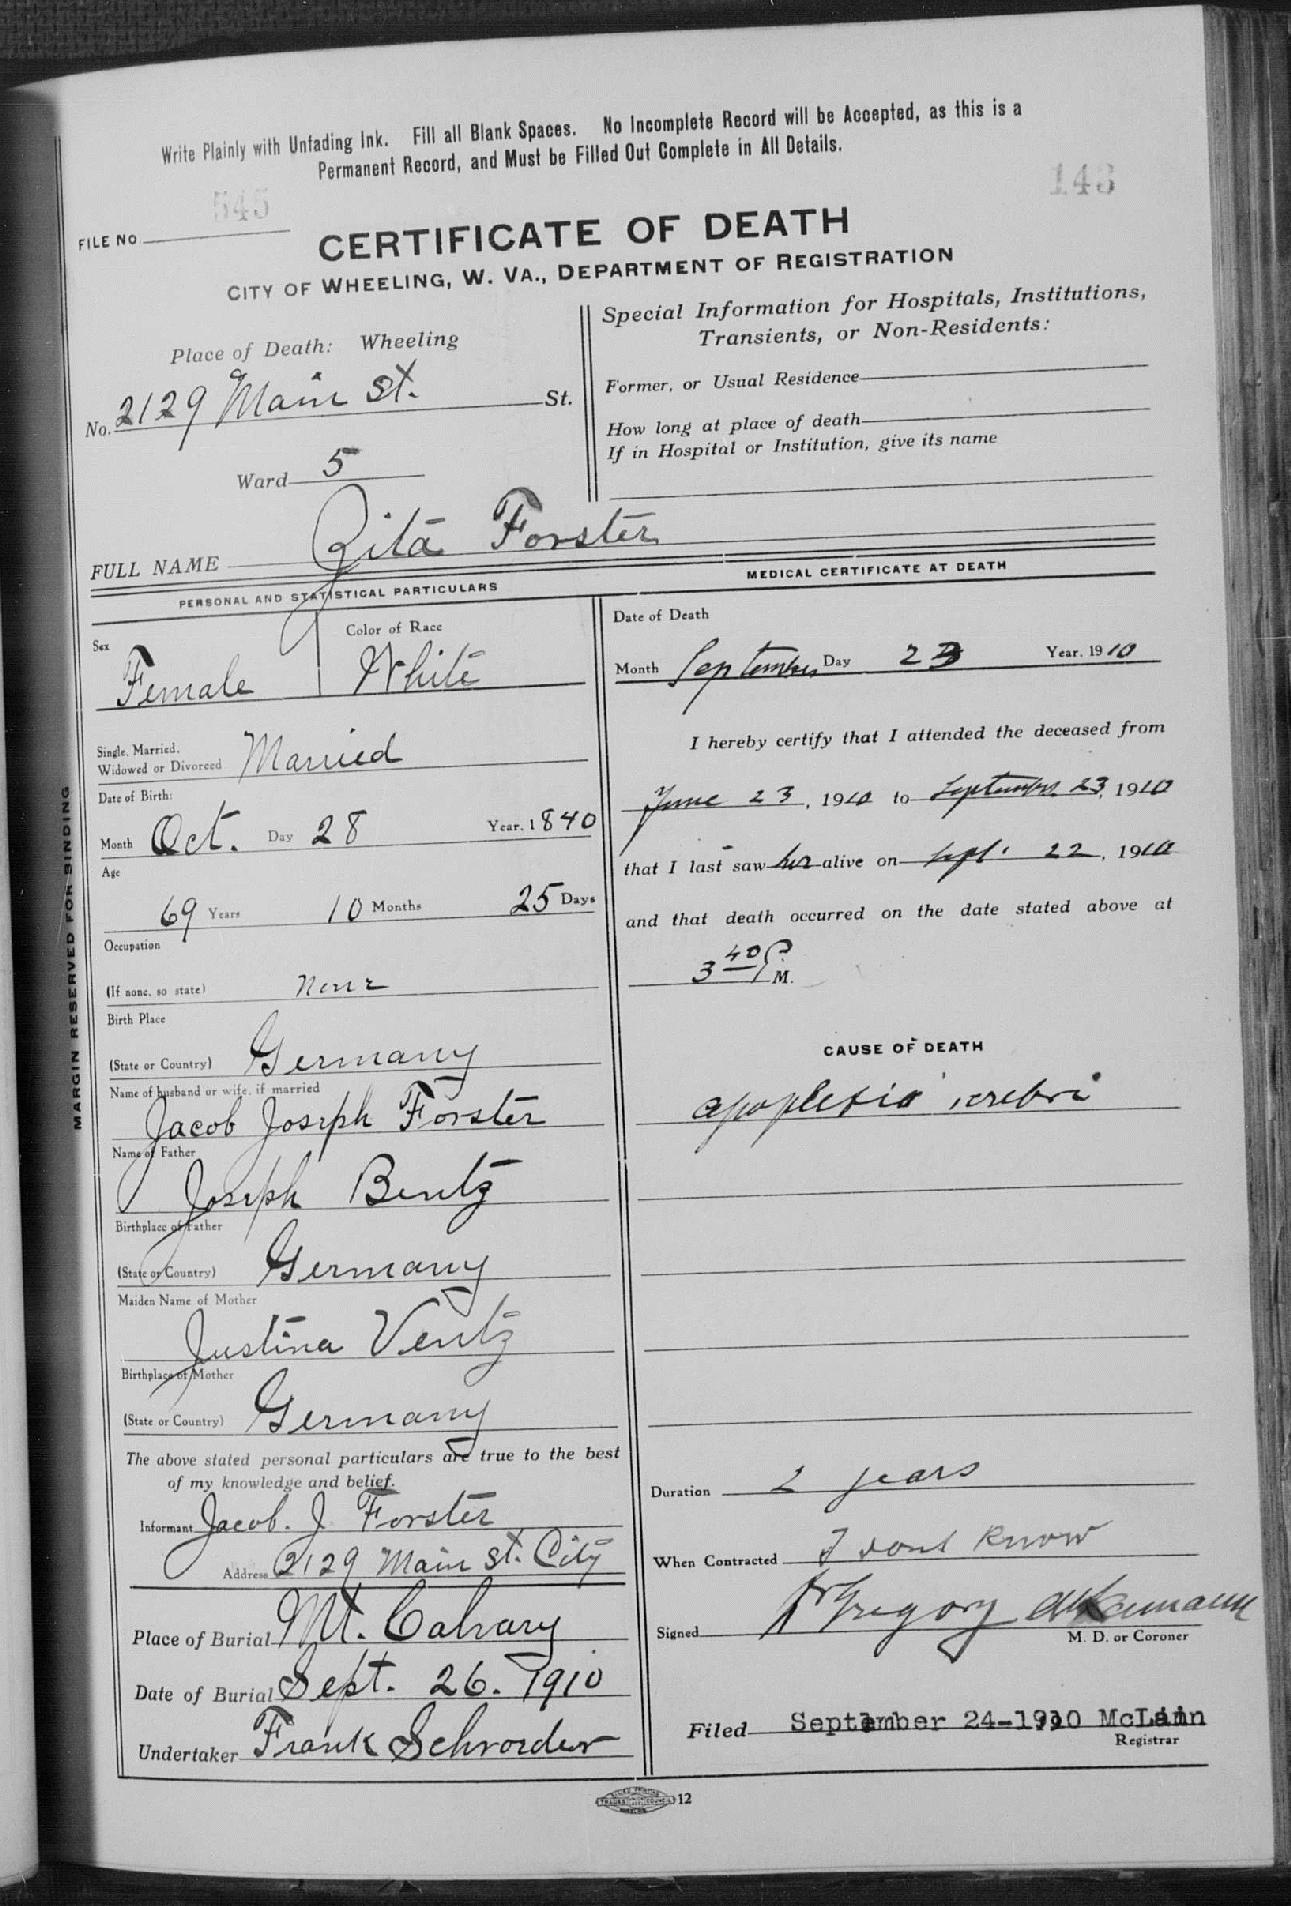 Write Plainly with Unfading Ink. Fill all Blank Spaces. No Incomplete Record will be Accepted, as this is a
Permanent Record, and Must be Filled Out Complete in All Details.
545
143
FILE NO
CERTIFICATE OF DEATH
CITY OF WHEELING, W. VA., DEPARTMENT OF REGISTRATION
Place of Death: Wheeling
No. 2129 Main St. St.
Ward 5
Special Information for Hospitals, Institutions,
Transients, or Non-Residents:
Former, or Usual Residence
How long at place of death
If in Hospital or Institution, give its name
FULL NAME Zita Forster
PERSONAL AND STATISTICAL PARTICULARS
Sex
Color of Race
Female White
Single, Married,
Widowed or Divorced Married
Date of Birth:
Month Oct. Day 28 Year. 1840
Age
69 Years 10 Months 25 Days
Occupation
(If none, so state) none
Birth Place
(State or Country) Germany
Name of husband or wife, if married
Jacob Joseph Forster
Name of Father
Joseph Bentz
Birthplace of Father
(State or Country) Germany
Maiden Name of Mother
Justina Ventz
Birthplace of Mother
(State or Country) Germany
The above stated personal particulars are true to the best
of my knowledge and belief.
Informant Jacob. J. Forster
Address 2129 Main St. City
Place of Burial Mt. Calvary
Date of Burial Sept. 26. 1910
Undertaker Frank Schroeder
MEDICAL CERTIFICATE AT DEATH
Date of Death
Month September Day 23 Year. 1910
I hereby certify that I attended the deceased from
June 23, 1910 to September 23, 1910
that I last saw her alive on Sept. 22, 1910
and that death occurred on the date stated above at
3 40 P M.
CAUSE OF DEATH
apoplexia cerebri
Duration 2 years
When Contracted I dont know
Signed Dr Gregory
M. D. or Coroner
Filed September 24-1910 McLain
Registrar
MARGIN RESERVED FOR BINDING
12